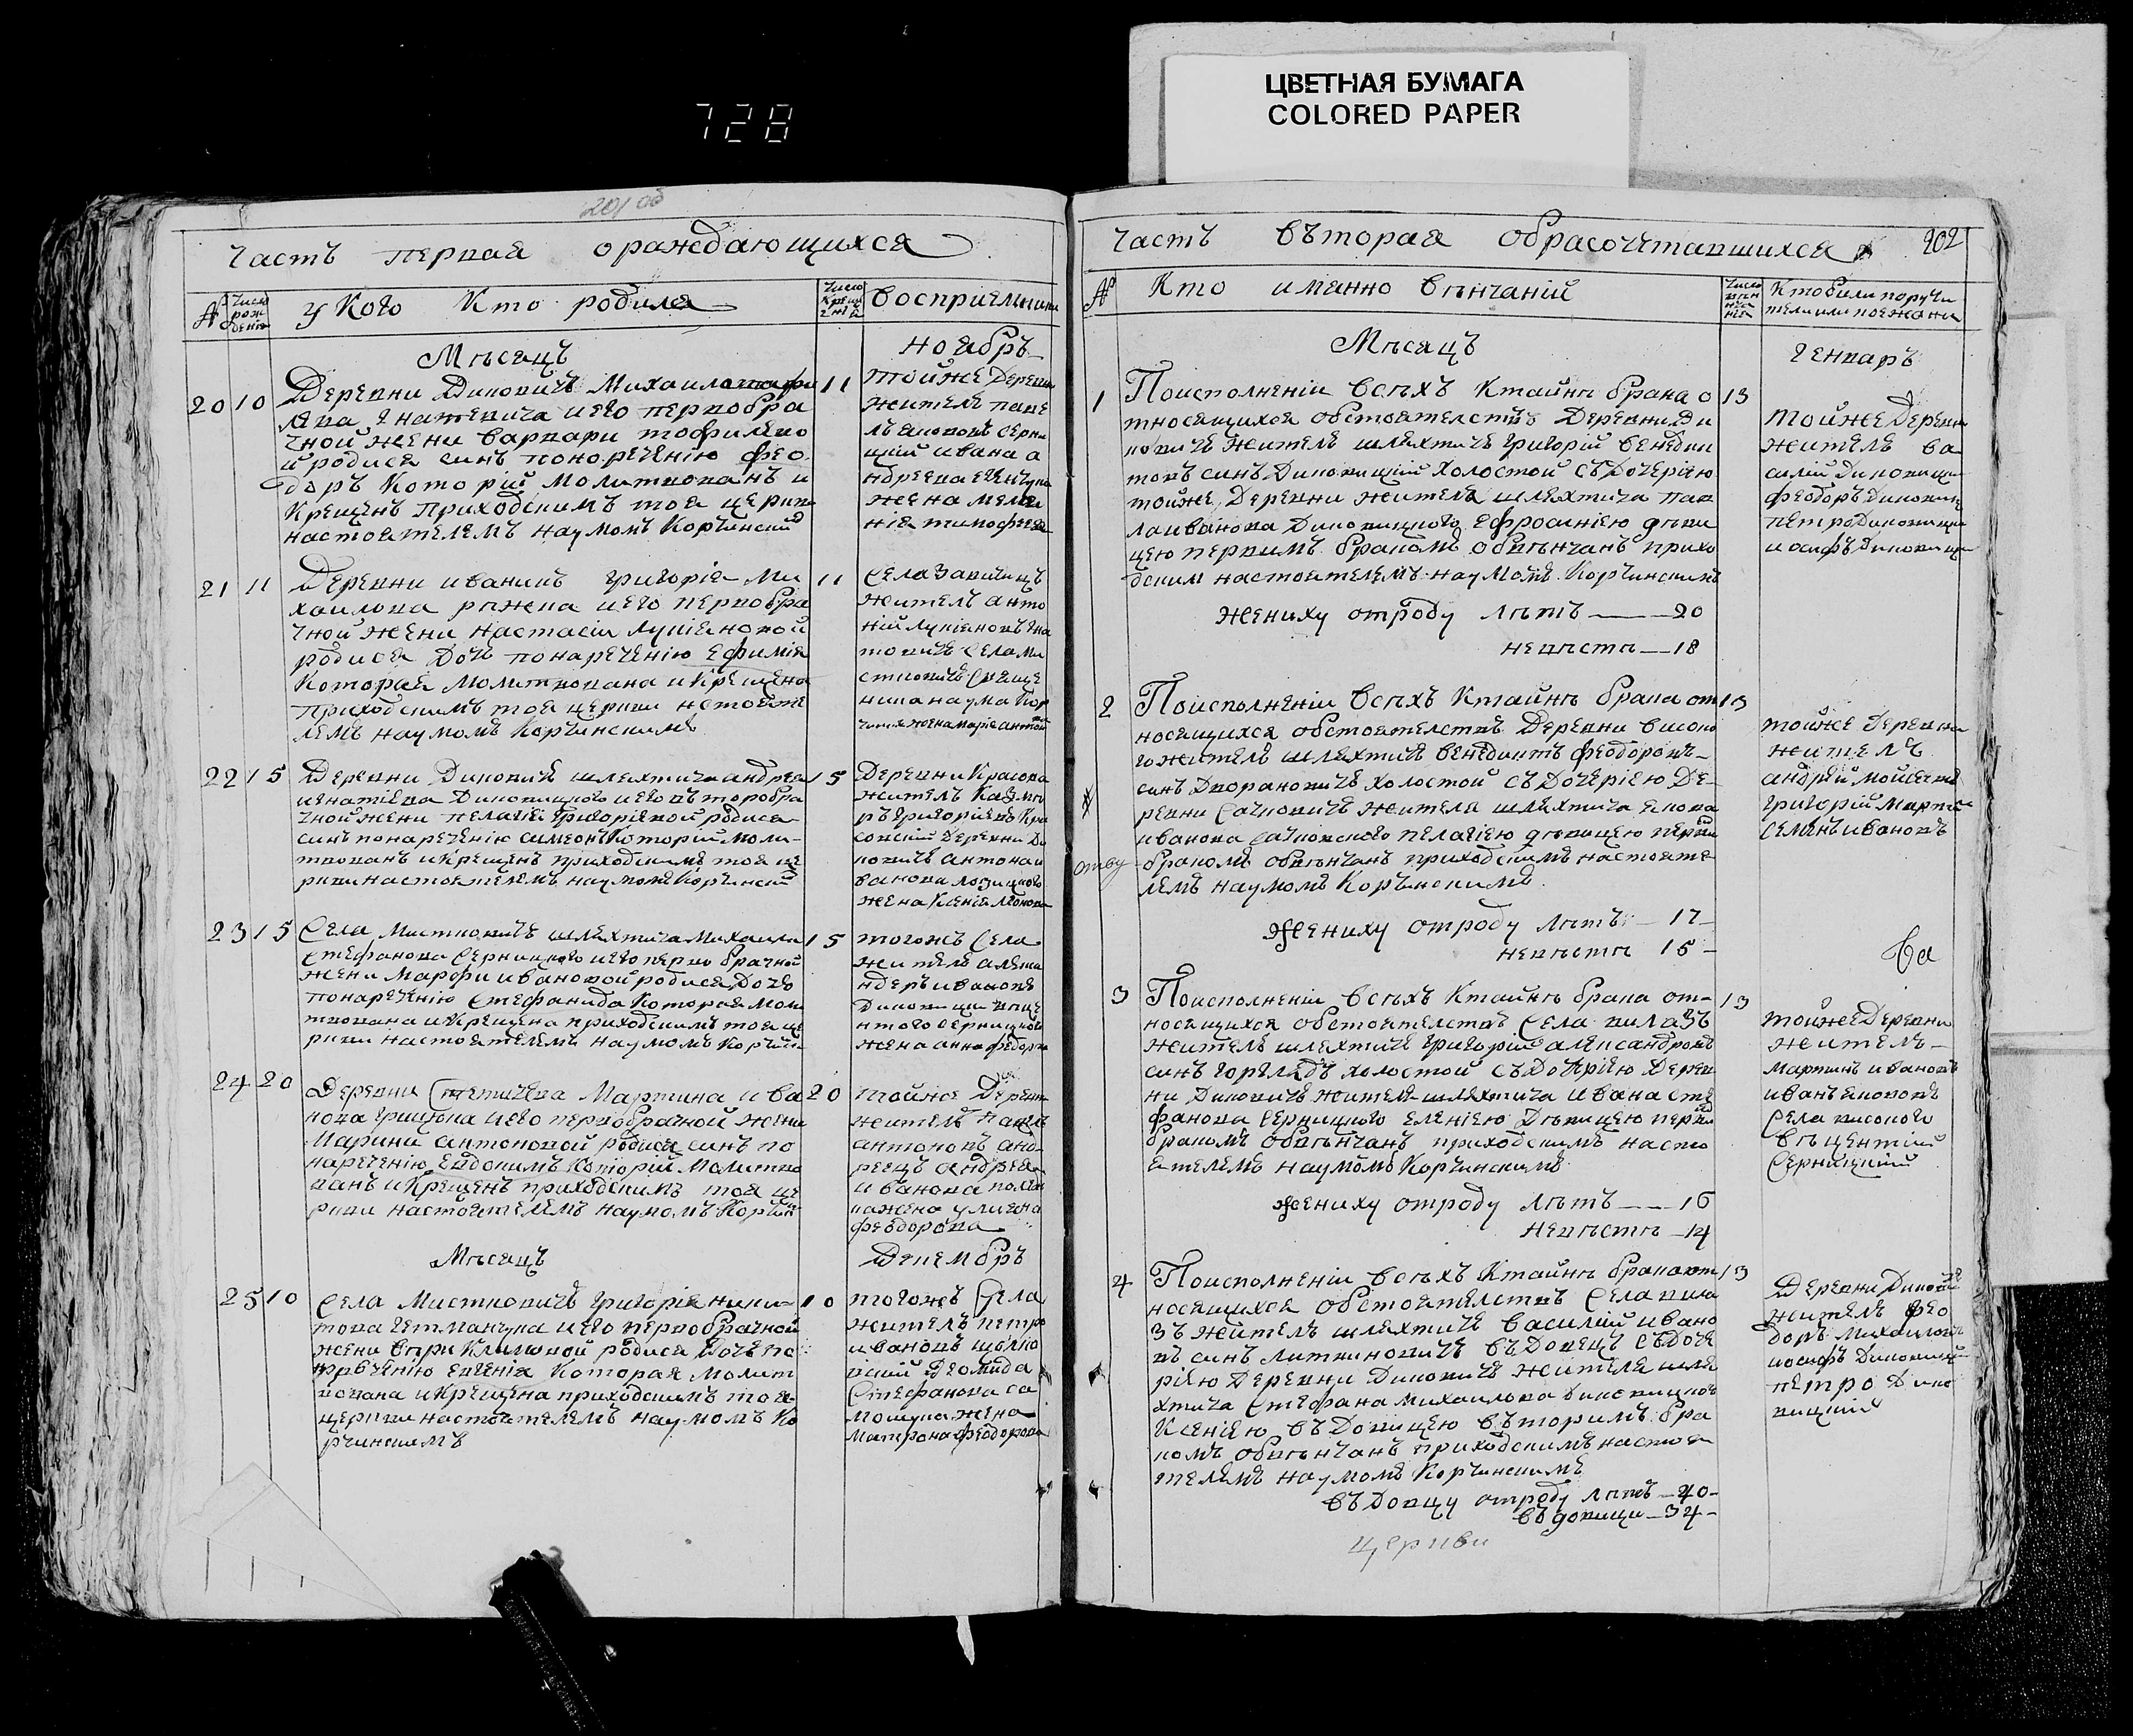 728
ЦВЕТНАЯ БУМАГА
COLORED PAPER
201 об
Часть первая ораждающихся
№
число рождения
у Кого Кто родился
число крещения
Восприемники
Мѣсяцъ
ноябрь
20 10
Деревни Диковичъ Михаила
Игнатевича и его первобра
чной жени Варвари Тофилево
й родися синъ по наречению Фео
доръ Которий молитвованъ и
Крещенъ Приходскимъ тоя церкви
настоятелемъ наумомъ Корчински
11
тойже Деревни
жителъ павe
лъ Якововъ Серни
цкий ивана а
ндреева
жена мела
ния тимофеева
21 11
Деревни иваникъ григория Ми
хаилова и его первобра
чной жени настасии лукияновой
родися Дочь по наречению Ефимия
Которая Молитвована и Крещена
Приходскимъ тоя церкви настояте
лемъ наумомъ Корчинскимъ
11
Села Завичицъ
жителъ анто
ний Лукияновъ Гна
товичъ Села Ми
стковичъ Свяще
ника наума Кор
чинск жена мария антон
22 15
Деревни Диковичъ шляхтича андрея
игнатиева Диковицкого и его второбра
чной жени пелагеи григориевой родися
синъ по наречению симеонъ Которий моли
твованъ и Крещенъ приходскимъ тоя це
ркви настоятелемъ наумомъ Корчински
15
Деревни Красова
жителъ Казми
ръ Григориевъ Кра
совский Деревни Ди
ковичъ антона и
ванова
жена Ксения
23 15
Села Мистковичъ шляхтича Михаила
Стефанова Серницкого и его первобрачной
жени Марфи ивановой родися Дочь
по наречению Стефанида Которая Моли
твована и Крещена приходскимъ тоя це
ркви настоятелемъ наумомъ Корчин
15
тогожъ Села
жителъ алекса
ндеръ ивановъ
Диковицки вице
нтого Серницкого
жена анна федорова
24 20
Деревни Стетичева Мартина ива
нова Грицука и его первобрачной жени
Марини антоновой родися синъ по
наречению Евдокимъ Которий Молитво
ванъ и Крещенъ приходскимъ тоя це
ркви настоятелемъ наумомъ Корчин
20
тойже Деревни
жителъ павелъ
антоновъ анд
реецъ андрея
иванова
жена улияна
феодорова
Мѣсяцъ
Декембръ
25 10
Села Мистковичъ григория ники
това Гетманчука и его первобрачной
жени вѣри Климовой родися Дочь по
наречению Евгения Которая Молит
вована и Крещена приходскимъ тоя
церкви настоятелемъ наумомъ Ко
рчинскимъ
10
тогожъ Села
жителъ петро
ивановъ
Стефанова са
мощука жена
Матрона феодорова
Часть въторая обрасочетавшихся
202
№
Кто иманно Вѣнчаний
число вѣнчания
Кто били поручи
тели или поежани
Мѣсяцъ
Генваръ
1
По исполнении Всѣхъ Ктайнѣ брака о
тносящихся обстоятелствъ Деревни Ди
ковичъ жителъ шляхтичъ григорий Бенедик
товъ синъ Диковицкий холостой съ Дочерию
тойже Деревни жителя шляхтича пав
ла иванова Диковицкого Ефросиниею дѣви
цею первимъ бракомъ обвѣнчанъ прихо
дским настоятелемъ наумомъ Корчинскимъ
Жениху отроду лѣтъ — 20
невѣсти — 18
13
тойже Деревни
жителъ ва
силий Диковицки
феодоръ Диковицк
петро Диковицки
иосифъ Диковицки
2
По исполнении Всѣхъ Ктайнѣ брака от
носящихся обстоятелствъ Деревни Високо
го жителъ шляхтичъ бенедиктъ феодоровъ
синъ Дворановичъ холостой съ Дочерию Де
ревни Сачковичъ жителя шляхтича Якова
иванова Сачковского пелагиею дѣвицею первим
бракомъ обвѣнчанъ приходскимъ настояте
лемъ наумомъ Корчинскимъ
Жениху отроду лѣтъ — 17
невѣсти 15
13
тойже Деревни
жителъ
андрей Мойсеевъ
григорий Марти
Семенъ ивановъ
3
По исполнении Всѣхъ Ктайнѣ брака от
носящихся обстоятелствъ Села вилазъ
жителъ шляхтичъ григорий александровъ
синъ Горегладъ холостой съ Дочерию Дерев
ни Диковичъ жителя шляхтича ивана Сте
фанова Серницкого Елениею Дѣвицею первим
бракомъ обвѣнчанъ приходскимъ насто
ятелемъ наумомъ Корчинскимъ
жениху отроду лѣтъ — 16
невѣсти — 14
13
тойже Деревни
жителъ
Мартинъ ивановъ
иванъ Якововъ
Села високого
Вѣцентий
Серницкий
4
По исполнении Всѣхъ Ктайнѣ брака от
носящихся обстоятелствъ Села вила
зъ жителъ шляхтичъ василий ивано
въ синъ литвиновичъ въДовецъ съ Доче
рию Деревни Диковичъ жителя шля
хтича Стефана Михаилова Диковицкого
Ксениею въДовицею въторимъ бра
комъ обвѣнчанъ приходскимъ настоя
телемъ наумомъ Корчинскимъ
въДовцу отроду лѣтъ — 40
въдовици — 34
13
Деревни Дикови
жителъ Фео
доръ Михаиловъ
иосифъ Диковицки
петро Дико
вицкий
церкви